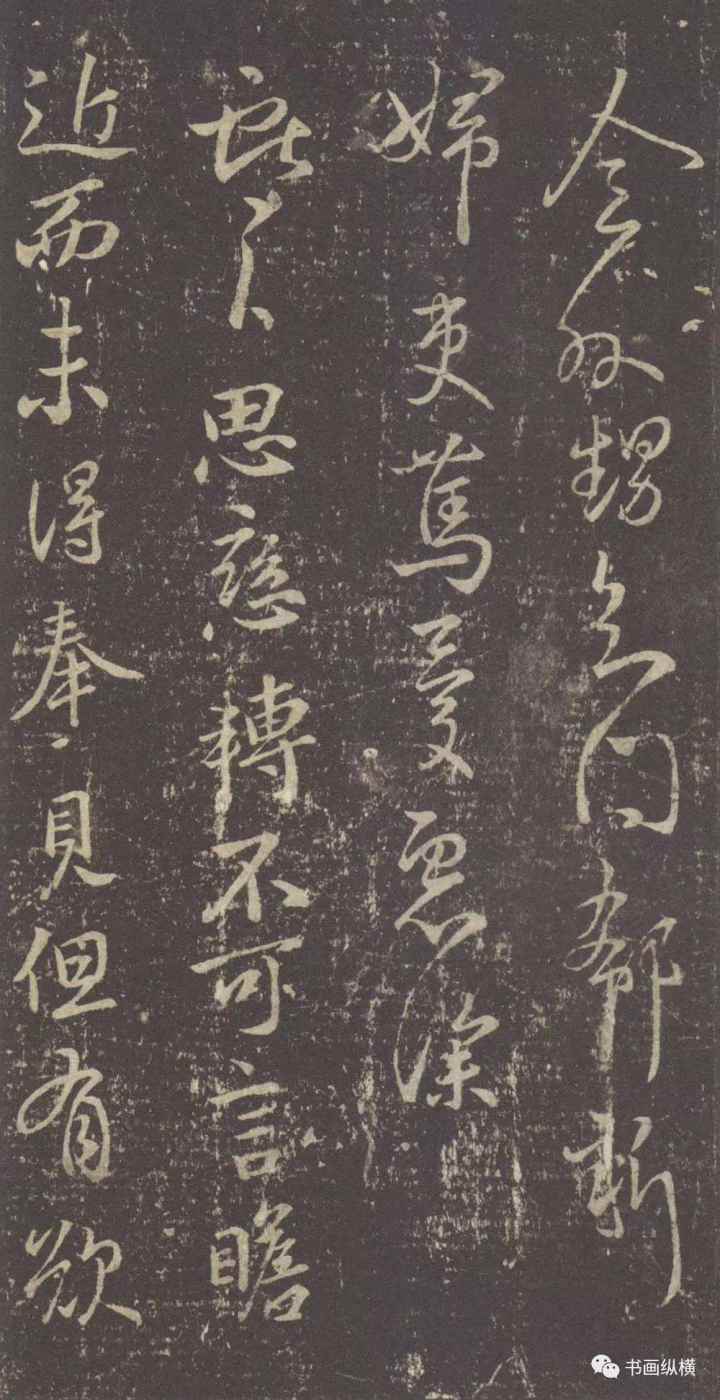 念外甥知問郗新
婦更篤憂慮深
思戀轉不可言瞻
近而未得奉見但有歎
书画纵横